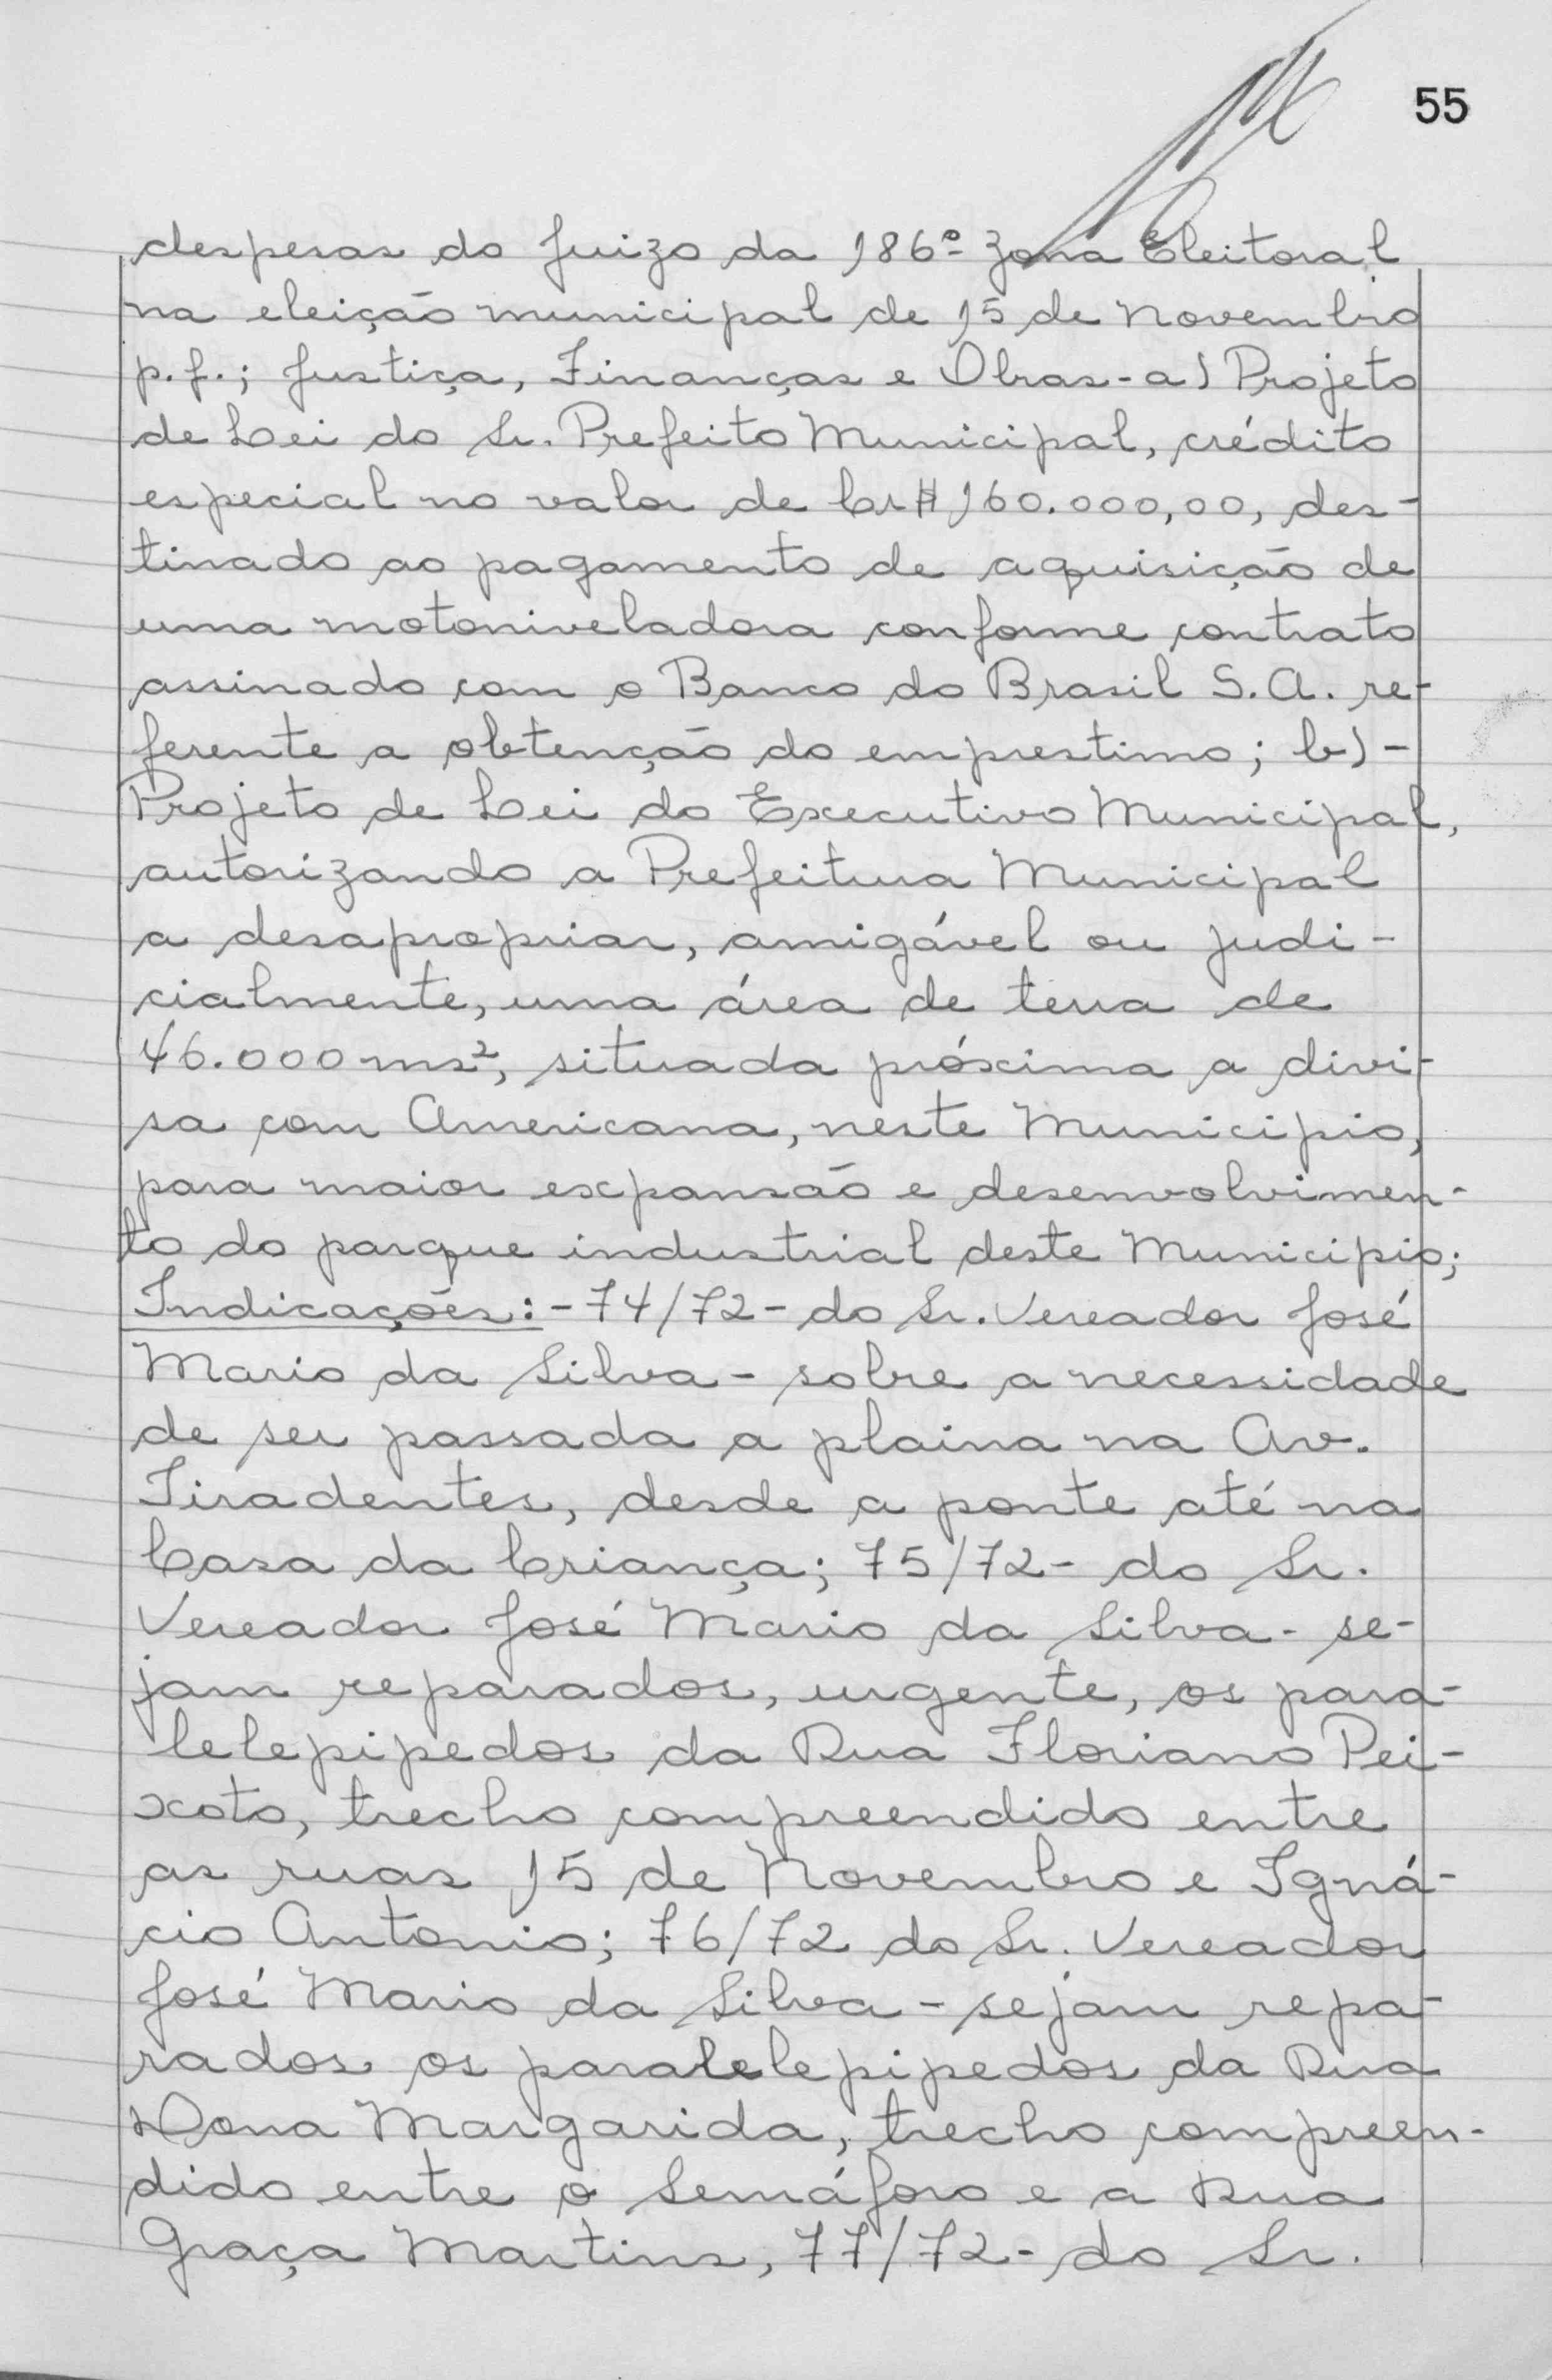 55
despesas do Juizo da 186º Zona Eleitoral
na eleição municipal de 15 de Novembro
p.f.; Justiça, Finanças e Obras - a) Projeto
de Lei do Sr. Prefeito Municipal, crédito
especial no valor de Cr$ 160.000,00, des-
tinado ao pagamento de aquisição de
uma motoniveladora conforme contrato
assinado com o Banco do Brasil S.A. re-
ferente a obtenção do emprestimo; b) -
Projeto de Lei do Executivo Municipal,
autorizando a Prefeitura Municipal
a desapropriar, amigável ou judi-
cialmente, uma área de terra de
46.000 ms², situada próxima a divi-
sa com Americana, neste Municipio,
para maior expansão e desenvolvimen-
to do parque industrial deste Municipio;
Indicações: - 74/72 - do Sr. Vereador José
Mario da Silva - sobre a necessidade
de ser passada a plaina na Av.
Tiradentes, desde a ponte até na
Casa da Criança; 75/72 - do Sr.
Vereador José Mario da Silva - se-
jam reparados, urgente, os para-
lelepipedos da Rua Floriano Pei-
xoto, trecho compreendido entre
as ruas 15 de Novembro e Igná-
cio Antonio; 76/72 do Sr. Vereador
José Mario da Silva - sejam repa-
rados os paralelepipedos da Rua
Dona Margarida, trecho compreen-
dido entre o Semáforo e a Rua
Graça Martins, 77/72 - do Sr.